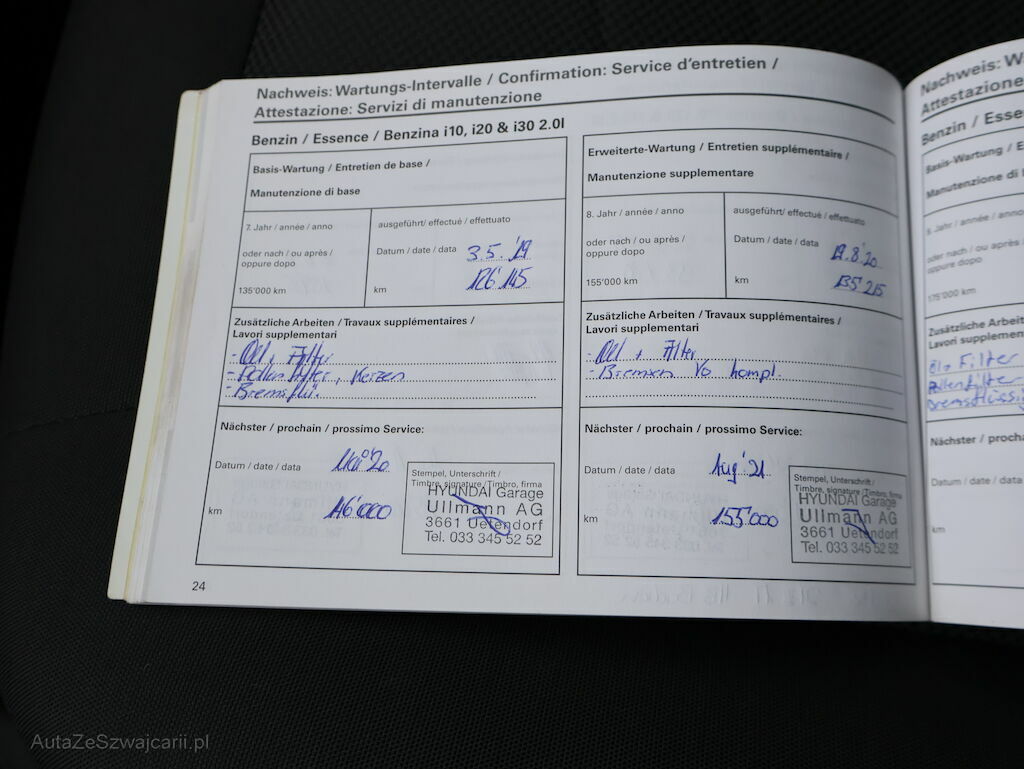 Nachweis: Wartungs-Intervalle / Confirmation: Service d'entretien /
Attestazione: Servizi di manutenzione
Benzin / Essence / Benzina i10, i20 & i30 2.0l
Basis-Wartung / Entretien de base /
Manutenzione di base
7. Jahr / année / anno
ausgeführt/ effectué / effettuato
oder nach / ou après /
oppure dopo
Datum / date / data 3.5.'19
135'000 km
km 126'145
Zusätzliche Arbeiten / Travaux supplémentaires /
Lavori supplementari
- Oel + Filter
- Pollenfilter, Kerzen
- Bremsflü.
Nächster / prochain / prossimo Service:
Datum / date / data Mai '20
km 146'000
Stempel, Unterschrift /
Timbre, signature /Timbro, firma
HYUNDAI Garage
Ullmann AG
3661 Uetendorf
Tel. 033 345 52 52
24
Erweiterte-Wartung / Entretien supplémentaire /
Manutenzione supplementare
8. Jahr / année / anno
ausgeführt/ effectué / effettuato
oder nach / ou après /
oppure dopo
Datum / date / data 19.8.'20
155'000 km
km 135'215
Zusätzliche Arbeiten / Travaux supplémentaires /
Lavori supplementari
- Oel + Filter
- Bremsen Vo kompl.
Nächster / prochain / prossimo Service:
Datum / date / data Aug '21
km 155'000
Stempel, Unterschrift /
Timbre, signature /Timbro, firma
HYUNDAI Garage
Ullmann AG
3661 Uetendorf
Tel. 033 345 52 52
Nachweis:
Attestazione
Benzin /
Basis-Wartung /
Manutenzione di
Jahr / année / anno
oder nach / ou après /
oppure dopo
175'000 km
Zusätzliche
Lavori
Filter
Pollenfilter
Bremsflüssig
Nächster /
Datum / date / data
km
AutaZeSzwajcarii.pl